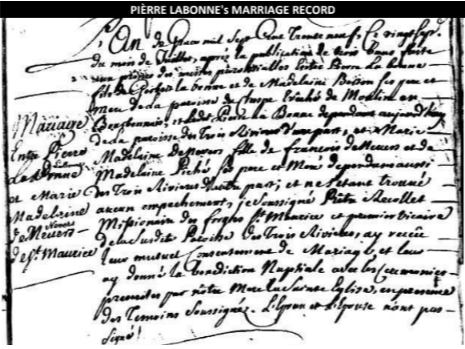 PIÈRRE LABONNE's MARRIAGE RECORD
L'An de Grace mil Sept Cent Trente neuf, le vingt
du mois de Juillet, après la publication de trois bans faite
aux prônes des messes paroissiales Entre Pierre La bonne
fils de la bonne et de Madelaine Buisson ses pere et
mere de la paroisse de Evêché de Moulin en
Bourbonnais, et ledit La Bonne dependant aujourd'huy
de la paroisse des Trois Rivieres d'une part, et Marie
Madelaine de Nevers fille de francois de Nevers et de
Madelaine Piché ses pere et Mere dependans aussi
des Trois Rivieres d'autre part, et ne s'etant trouué
aucun empechement, je Soussigné Prêtre Recollet
Missionaire des forges St Maurice et premier vicaire
de la susdite Paroisse des Trois Rivieres, ay recûe
leur mutuel Consentement de Mariage, et leur
ay donné la Benediction Nuptiale avec les Ceremonies
prescrites par nôtre Mere la Sainte Eglise, en presence
des Temoins Soussignés. L'Epoux et L'Epouse n'ont pas
signé
Mariage
Entre Pierre
La Bonne
et Marie
Madelaine
de Nevers
de St Maurice